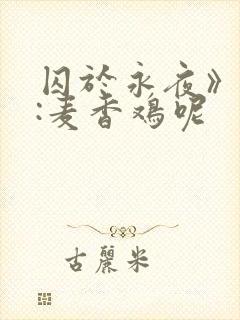 囚於永夜》
:麦香鸡呢
古麗米